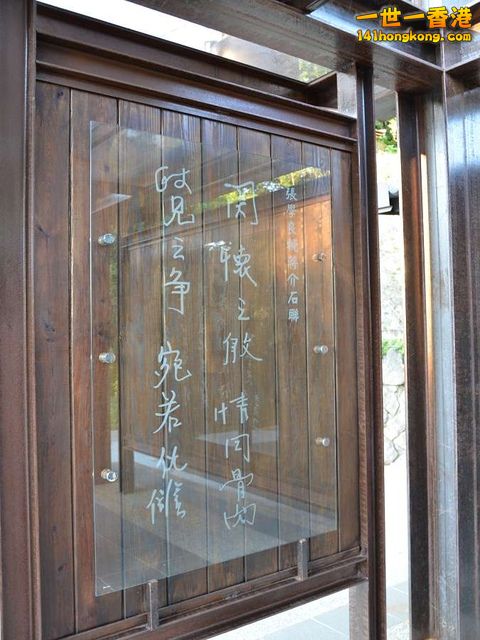 一世一香港
141hongkong.com
張學良輓蔣介石聯
関懷之殷 情同骨肉
政見之争 宛若仇讎